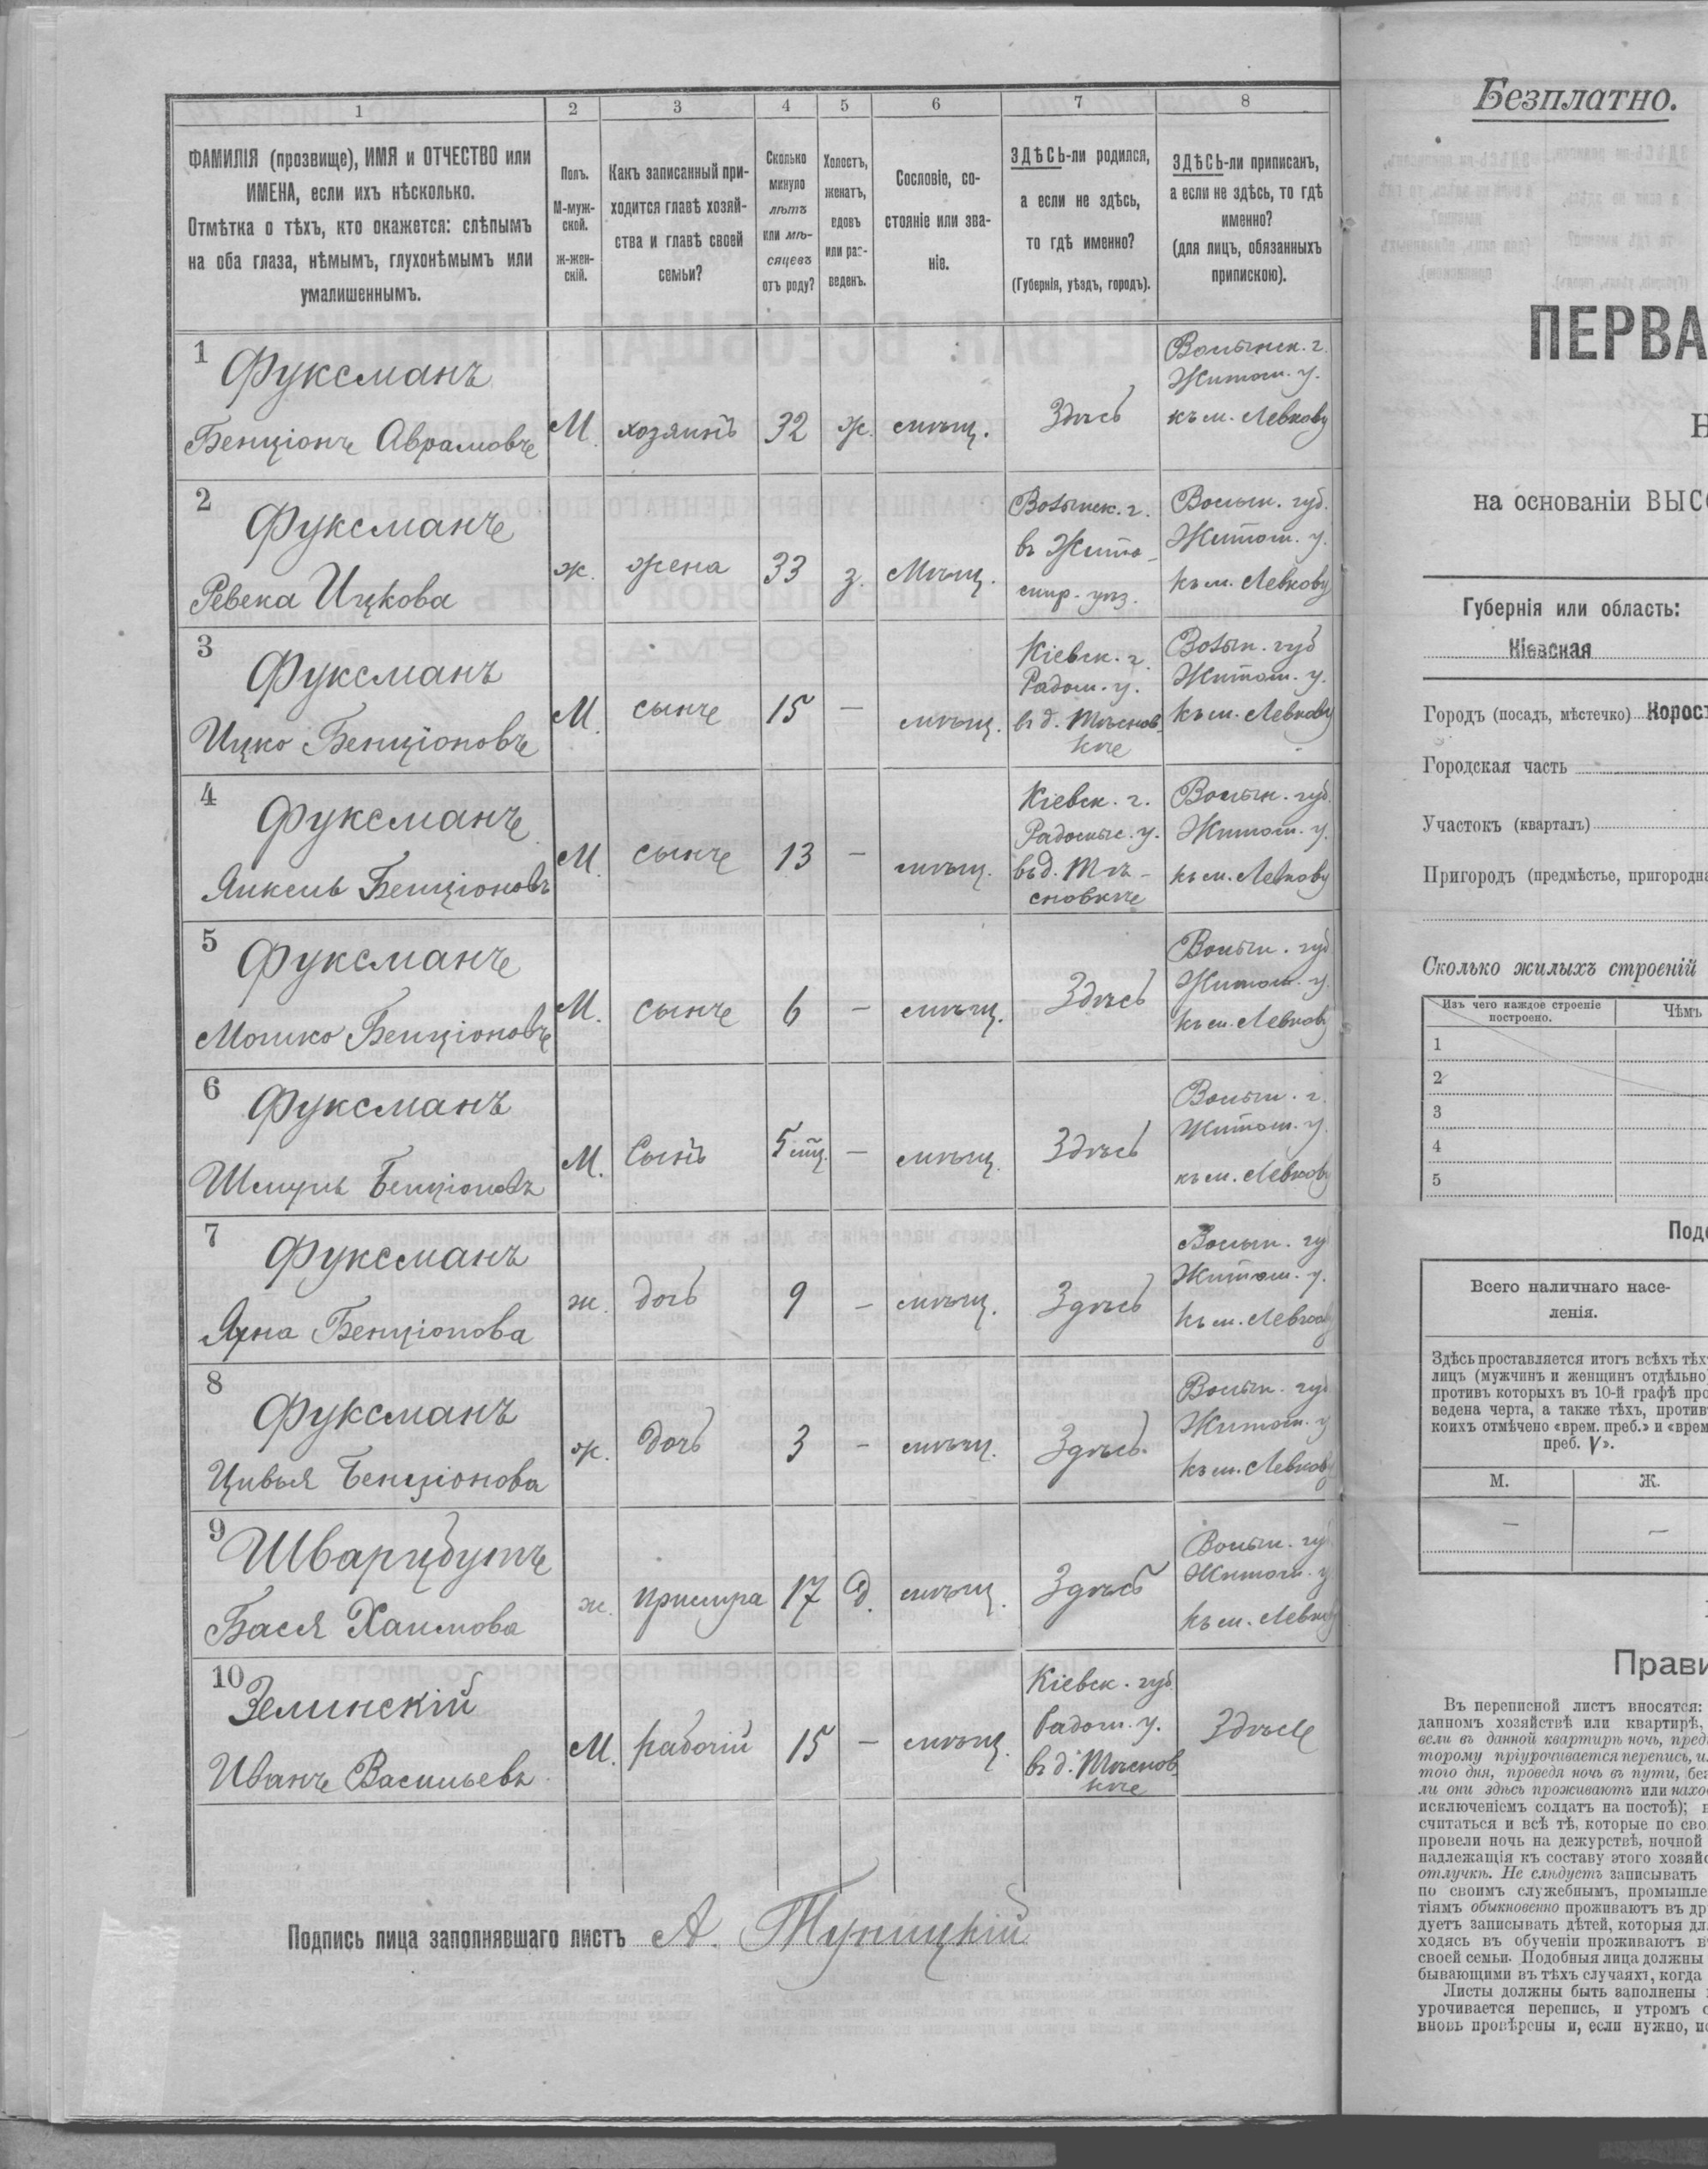 1 2 3 4 5 6 7 8
ФАМИЛІЯ (прозвище), ИМЯ и ОТЧЕСТВО или
ИМЕНА, если ихъ нѣсколько.
Отмѣтка о тѣхъ, кто окажется: слѣпымъ
на оба глаза, нѣмымъ, глухонѣмымъ или
умалишеннымъ.
Полъ.
М-муж-
ской.
ж-жен-
скій.
Какъ записанный при-
ходится главѣ хозяй-
ства и главѣ своей
семьи?
Сколько
минуло
лѣтъ
или мѣ-
сяцевъ
отъ роду?
Холостъ,
женатъ,
вдовъ
или раз-
веденъ.
Сословіе, со-
стояніе или зва-
ніе.
ЗДѢСЬ-ли родился,
а если не здѣсь,
то гдѣ именно?
(Губернія, уѣздъ, городъ).
ЗДѢСЬ-ли приписанъ,
а если не здѣсь, то гдѣ
именно?
(для лицъ, обязанныхъ
припискою).
1
Фуксманъ
Бенціонъ Аврамовъ
М.
хозяинъ
32
ж.
мѣщ.
Здѣсь
Волынск. г.
Житом. у.
къ м. Левкову
2
Фуксманъ
Ревека Ицкова
ж.
жена
33
з.
Мѣщ.
Волынск. г.
въ Жито-
мир. уѣз.
Волын. губ.
Житом. у.
къ м. Левкову
3
Фуксманъ
Ицко Бенціоновъ
М.
сынъ
15
—
мѣщ.
Кіевск. г.
Радом. у.
въ д. Тѣснов-
кѣ
Волын. губ
Житом. у.
къ м. Левкову
4
Фуксманъ
Янкель Бенціоновъ
М.
сынъ
13
—
мѣщ.
Кіевск. г.
Радомыс. у.
въ д. Тѣ-
сновкѣ
Волын. губ.
Житом. у.
къ м. Левкову
5
Фуксманъ
Мошко Бенціоновъ
М.
сынъ
6
—
мѣщ.
Здѣсь
Волын. губ
Житом. у.
къ м. Левкову
6
Фуксманъ
Шмуль Бенціоновъ
М.
Сынъ
5 мц.
—
мѣщ.
Здѣсь
Волын. г.
Житом. у.
къ м. Левкову
7
Фуксманъ
Яхна Бенціонова
ж.
дочь
9
—
мѣщ.
Здѣсь
Волын. гу
Житом. у.
къ м. Левкову
8
Фуксманъ
Цивья Бенціонова
ж.
дочь
3
—
мѣщ.
Здѣсь.
Волын. губ
Житом. у
къ м. Левкову
9
Шварцбутъ
Бася Хаимова
ж.
прислуга
17
д.
мѣщ.
Здѣсь
Волын. гу
Житом. у
къ м. Левкову
10
Зелинскій
Иванъ Васильевъ
М.
рабочій
15
—
мѣщ.
Кіевск. губ.
Радом. у.
въ д. Тѣснов-
кѣ
Здѣсь
Подпись лица заполнявшаго листъ А. Тупицкій
Безплатно.
ПЕРВА
Н
на основаніи ВЫСО
Губернія или область:
Кіевская
Городъ (посадъ, мѣстечко) Корост
Городская часть
Участокъ (кварталъ)
Пригородъ (предмѣстье, пригородна
Сколько жилыхъ строеній
Изъ чего каждое строеніе
построено.
Чѣмъ
1
2
3
4
5
Подс
Всего наличнаго насе-
ленія.
Здѣсь проставляется итогъ всѣхъ тѣхъ
лицъ (мужчинъ и женщинъ отдѣльно)
противъ которыхъ въ 10-й графѣ про
ведена черта, а также тѣхъ, против
коихъ отмѣчено «врем. преб.» и «врем
преб. V».
М. Ж.
— —
Прави
Въ переписной листъ вносятся:
данномъ хозяйствѣ или квартирѣ,
вели въ данной квартирѣ ночь, пред
торому пріурочивается перепись, и
того дня, проведя ночь въ пути, без
ли они здѣсь проживаютъ или нахо
исключеніемъ солдатъ на постоѣ); в
считаться и всѣ тѣ, которые по сво
провели ночь на дежурствѣ, ночной
надлежащія къ составу этого хозяйс
отлучкѣ. Не слѣдуетъ записывать
по своимъ служебнымъ, промышле
тіямъ обыкновенно проживаютъ въ др
дуетъ записывать дѣтей, которыя дл
ходясь въ обученіи проживаютъ в
своей семьи. Подобныя лица должны
бывающими въ тѣхъ случаяхъ, когда
Листы должны быть заполнены
урочивается перепись, и утромъ с
вновь провѣрены и, если нужно, ис